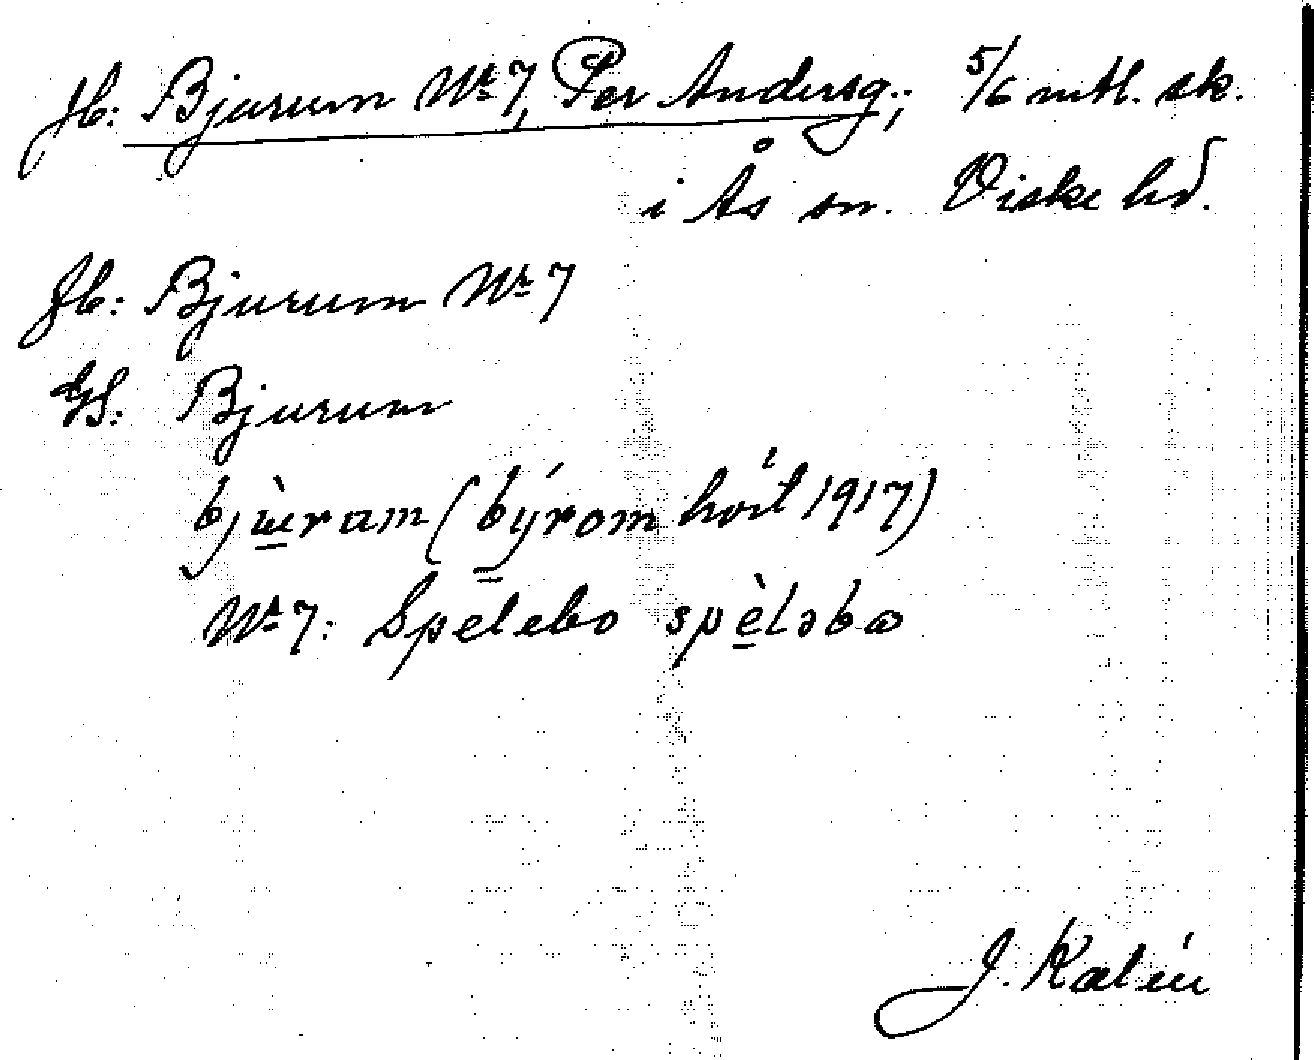 Jb: Bjurum Nr 7, Per Andersg.; 5/6 mtl. sk.
i Ås sn. Viske hd.
Jb: Bjurum Nr 7
GS: Bjurum
bjùram (býrom hört 1917)
Nr 7: Spelebo spèləbω
J. Kalén